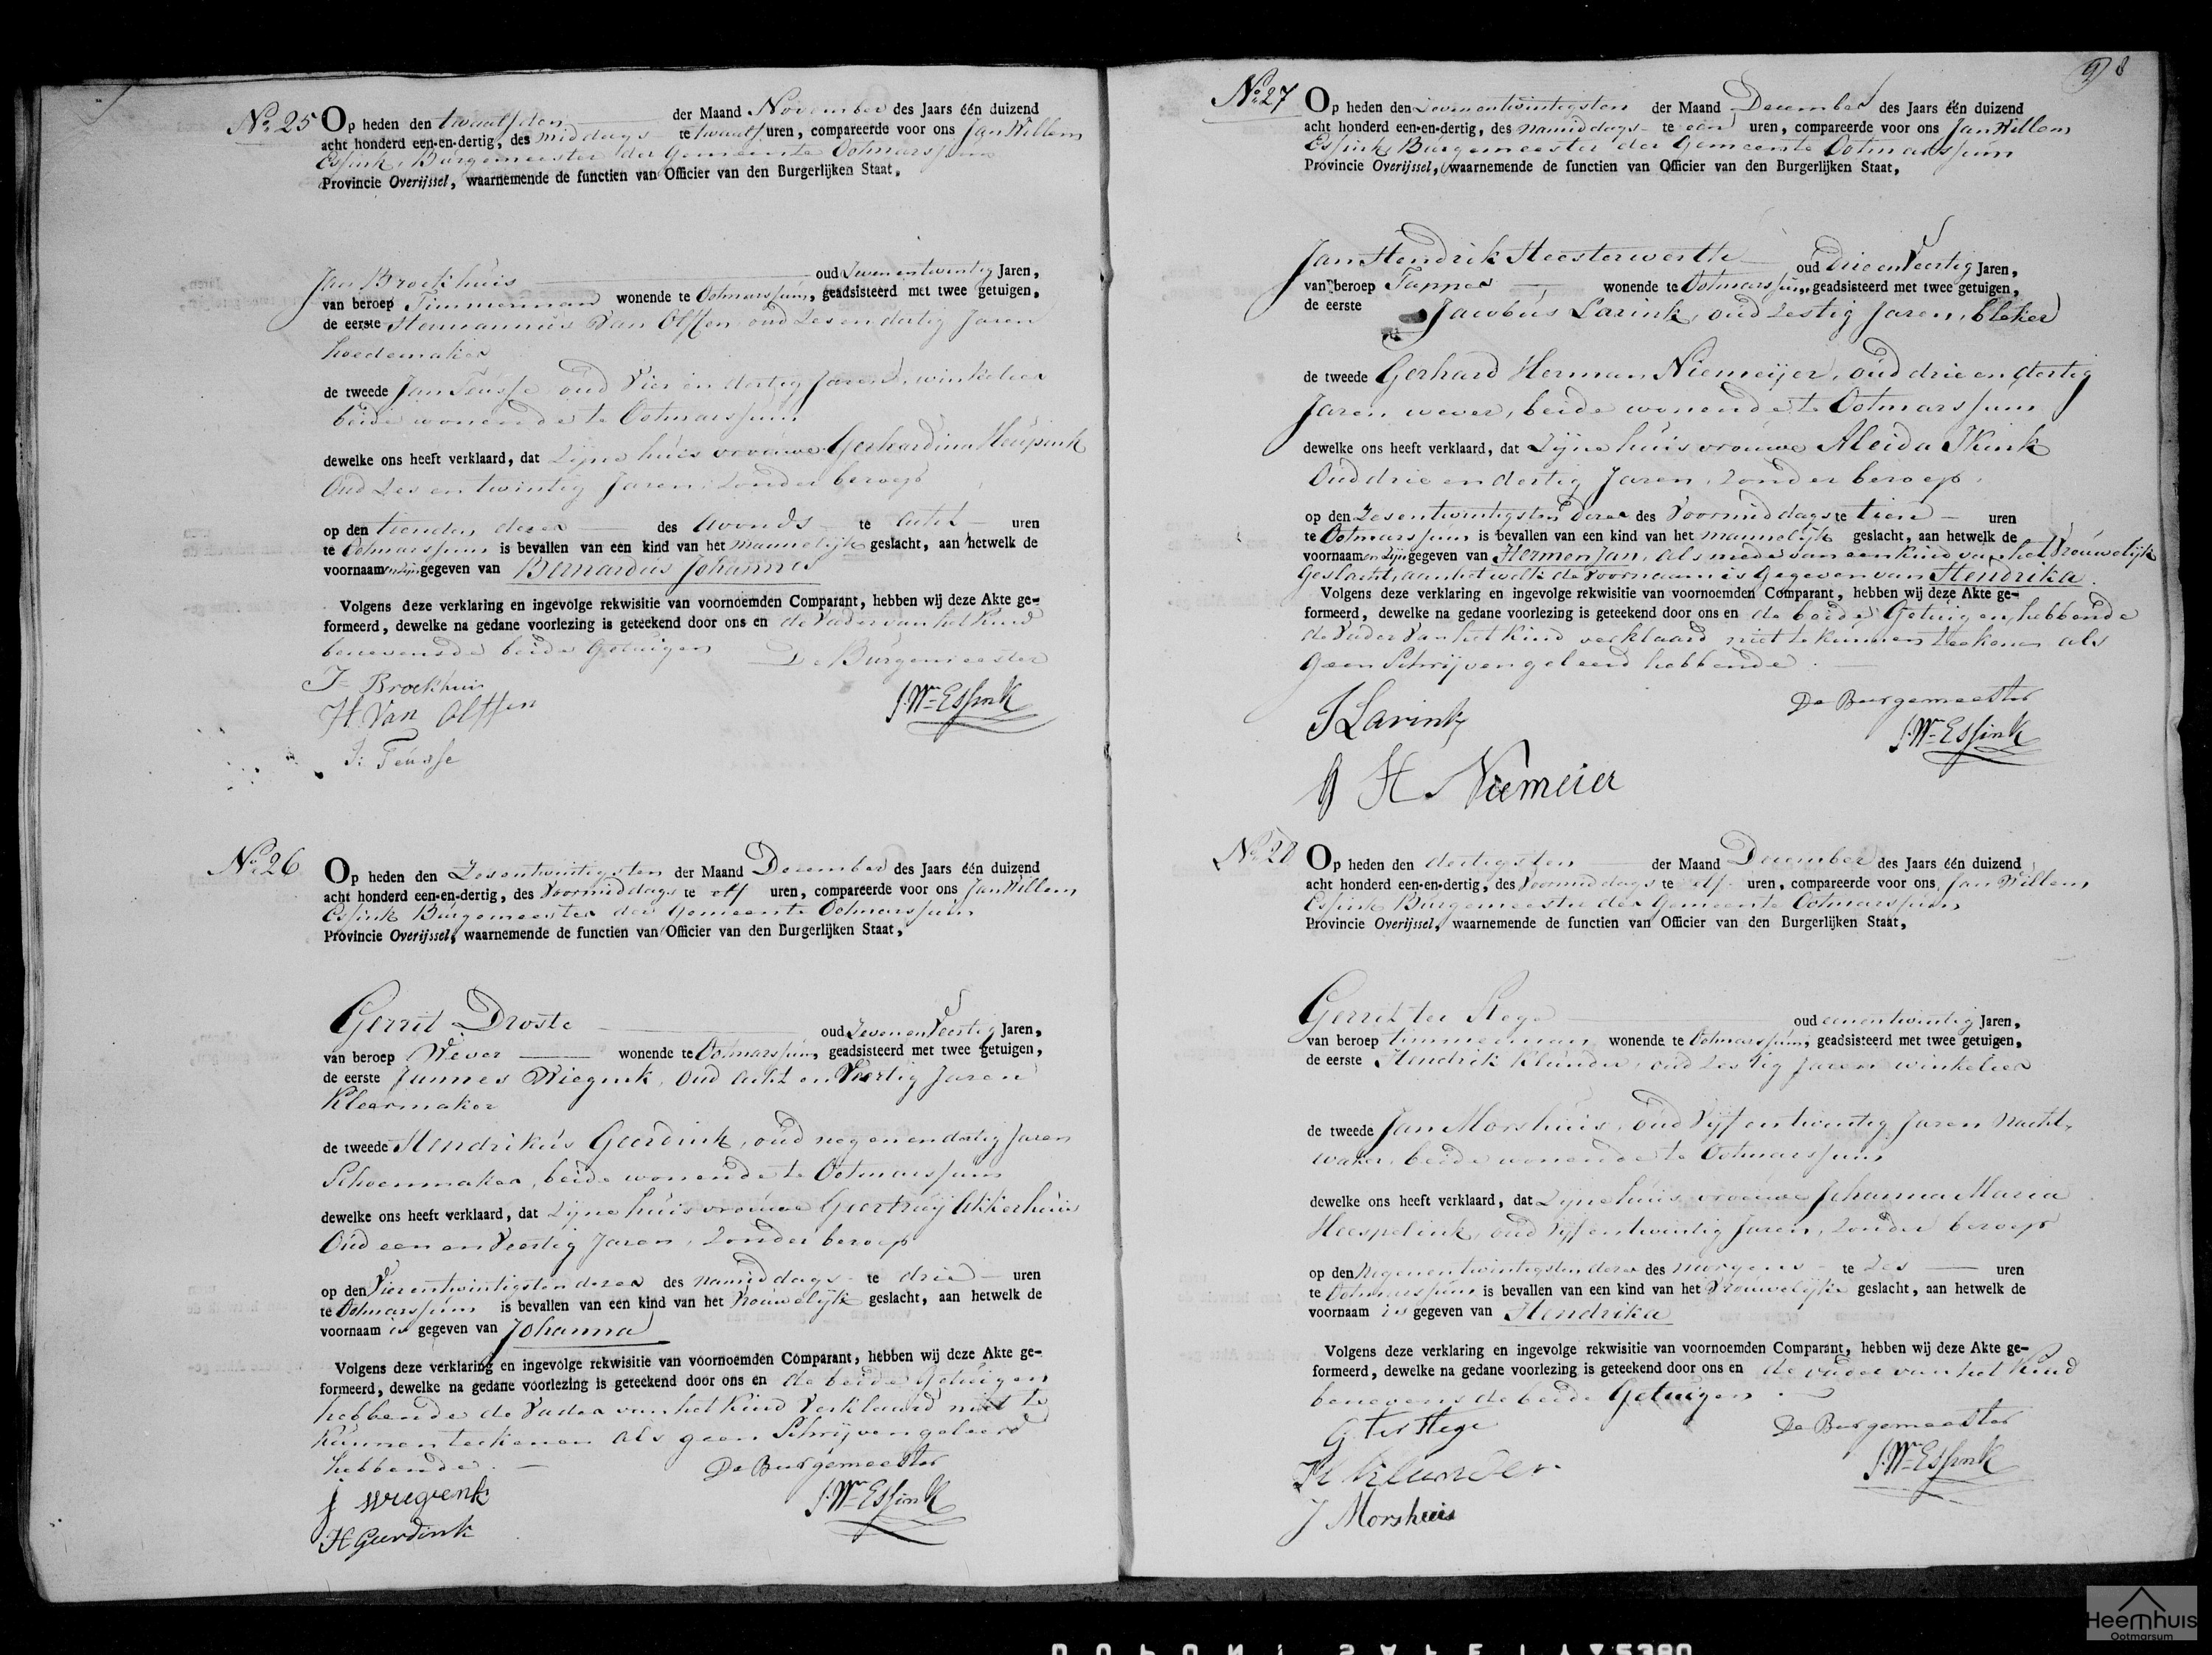 No. 25 Op heden den twaalfden der Maand November des Jaars één duizend
acht honderd een-en-dertig, des middags te twaalf uren, compareerde voor ons Jan Willem
Essink, Burgemeester der Gemeente Ootmarssum
Provincie Overijssel, waarnemende de functien van Officier van den Burgerlijken Staat,
Jan Broekhuis oud Zevenentwintig Jaren,
van beroep Timmerman wonende te Ootmarssum, geadsisteerd met twee getuigen,
de eerste Hermannus Van Olffen oud Zes en dertig Jaren
hoedemaker
de tweede Jan Teusse oud Vier en dertig Jaren, winkelier
beide wonende te Ootmarssum
dewelke ons heeft verklaard, dat Zijne huisvrouwe Gerhardina Heupink
Oud Zes en twintig Jaren, Zonder beroep
op den tienden dezer des Avonds te Acht uren
te Ootmarssum is bevallen van een kind van het mannelijk geslacht, aan hetwelk de
voornaamen zijn gegeven van Bernardus Johannes
Volgens deze verklaring en ingevolge rekwisitie van voornoemden Comparant, hebben wij deze Akte ge-
formeerd, dewelke na gedane voorlezing is geteekend door ons en de Vader van het Kind
benevens de beide Getuigen De Burgemeester
J= Broekhuis
H. Van Olffen
J. Wm= Essink
J: Teusse
No. 26 Op heden den Zesentwintigsten der Maand December des Jaars één duizend
acht honderd een-en-dertig, des Voormiddags te elf uren, compareerde voor ons Jan Willem
Essink Burgemeester der Gemeente Ootmarssum
Provincie Overijssel, waarnemende de functien van Officier van den Burgerlijken Staat,
Gerrit Droste oud Zevenen Veertig Jaren,
van beroep Wever wonende te Ootmarssum, geadsisteerd met twee getuigen,
de eerste Jannes Wiegink, Oud Acht en Veertig Jaren
Kleermaker
de tweede Hendrikus Geerdink, oud negenendertig Jaren
Schoenmaker, beide wonende te Ootmarssum
dewelke ons heeft verklaard, dat Zijne huisvrouwe Geertruij Akkerhuis
Oud een en Veertig Jaren, Zonder beroep
op den Vierentwintigsten dezer des namiddags te drie uren
te Ootmarssum is bevallen van een kind van het Vrouwelijk geslacht, aan hetwelk de
voornaam is gegeven van Johanna
Volgens deze verklaring en ingevolge rekwisitie van voornoemden Comparant, hebben wij deze Akte ge-
formeerd, dewelke na gedane voorlezing is geteekend door ons en de beide Getuigen
hebbende de Vader van het Kind Verklaard niet te
Kunnen teekenen als geen Schrijven geleerd
hebbende. De Burgemeester
j wiegenk
J. Wm= Essink
H Geerdink
98
No. 27 Op heden den Zevenentwintigsten der Maand December des Jaars één duizend
acht honderd een-en-dertig, des namiddags te een uren, compareerde voor ons Jan Willem
Essink, Burgemeester der Gemeente Ootmarssum
Provincie Overijssel, waarnemende de functien van Officier van den Burgerlijken Staat,
Jan Hendrik Heesterwerth oud Drie en Veertig Jaren,
van beroep Tapper wonende te Ootmarssum, geadsisteerd met twee getuigen,
de eerste Jacobus Larink, oud Zestig Jaren, bleker
de tweede Gerhard Herman Niemeijer, oud drie en dertig
Jaren wever, beide wonende te Ootmarssum
dewelke ons heeft verklaard, dat Zijne huisvrouwe Aleida Ikink
Oud drie en dertig Jaren, Zonder beroep,
op den Zesentwintigsten dezer des Voormiddags te tien uren
te Ootmarssum is bevallen van een kind van het mannelijk geslacht, aan hetwelk de
voornaamen zijn gegeven van Hermen Jan, als mede van een Kind van het Vrouwelijk
Geslacht, aan het welk de Voornaam is Gegeven van Hendrika.
Volgens deze verklaring en ingevolge rekwisitie van voornoemden Comparant, hebben wij deze Akte ge-
formeerd, dewelke na gedane voorlezing is geteekend door ons en de beide Getuigen, hebbende
de Vader Van het Kind verklaard niet te kunnen teekenen als
geen Schrijven geleerd hebbende.
De Burgemeester
J Larink
J. Wm= Essink
g H Niemeier
No. 28 Op heden den dertigsten der Maand December des Jaars één duizend
acht honderd een-en-dertig, des Voormiddags te elf uren, compareerde voor ons Jan Willem
Essink Burgemeester der Gemeente Ootmarssum
Provincie Overijssel, waarnemende de functien van Officier van den Burgerlijken Staat,
Gerrit ter Stege oud eenentwintig Jaren,
van beroep timmerman wonende te Ootmarssum, geadsisteerd met twee getuigen,
de eerste Hendrik Klunder, oud Zestig Jaren winkelier
de tweede Jan Morshuis, Oud Vijf en twintig Jaren Nacht-
waker, beide wonende te Ootmarssum
dewelke ons heeft verklaard, dat Zijne huisvrouwe Johanna Maria
Heespelink, oud Vijf entwintig Jaren, Zonder beroep
op den Negenentwintigsten dezer des morgens te Zes uren
te Ootmarssum is bevallen van een kind van het Vrouwelijke geslacht, aan hetwelk de
voornaam is gegeven van Hendrika
Volgens deze verklaring en ingevolge rekwisitie van voornoemden Comparant, hebben wij deze Akte ge-
formeerd, dewelke na gedane voorlezing is geteekend door ons en de vader van het Kind
benevens de beide Getuigen.
G ter Stege
De Burgemeester
H Klunder
J. Wm= Essink
J Morshuis
Heemhuis
Ootmarsum